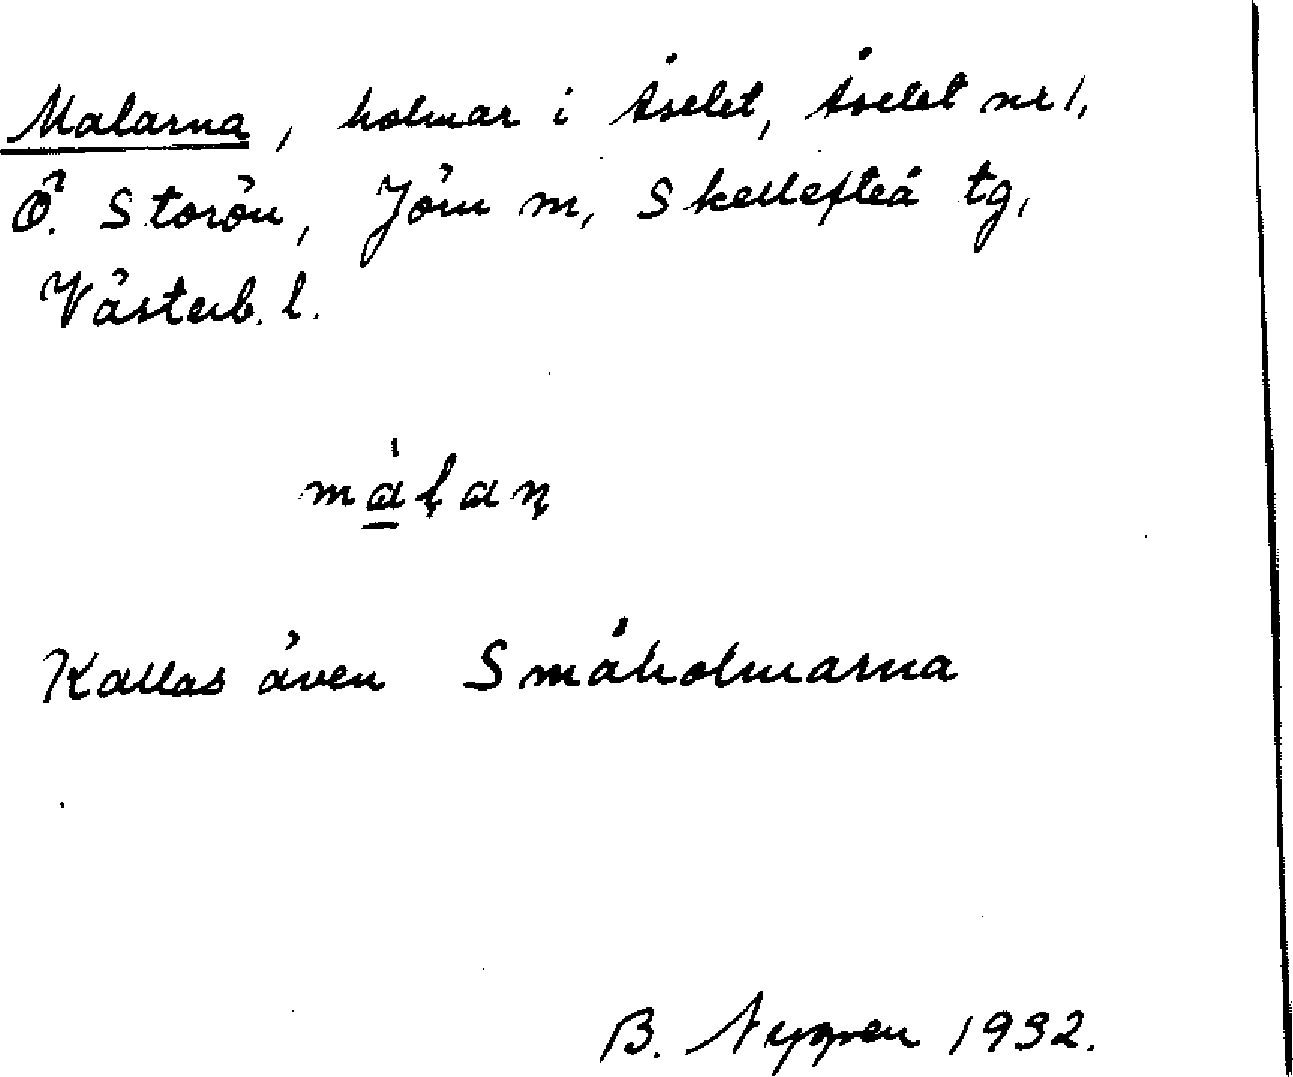 Malarna, holmar i Åselet, Åselet nr 1,
Ö. Storön, Jörn m, Skellefteå tg,
Västerb. l.
màḷaṇ
Kallas även Småholmarna
B. Nygren 1932.